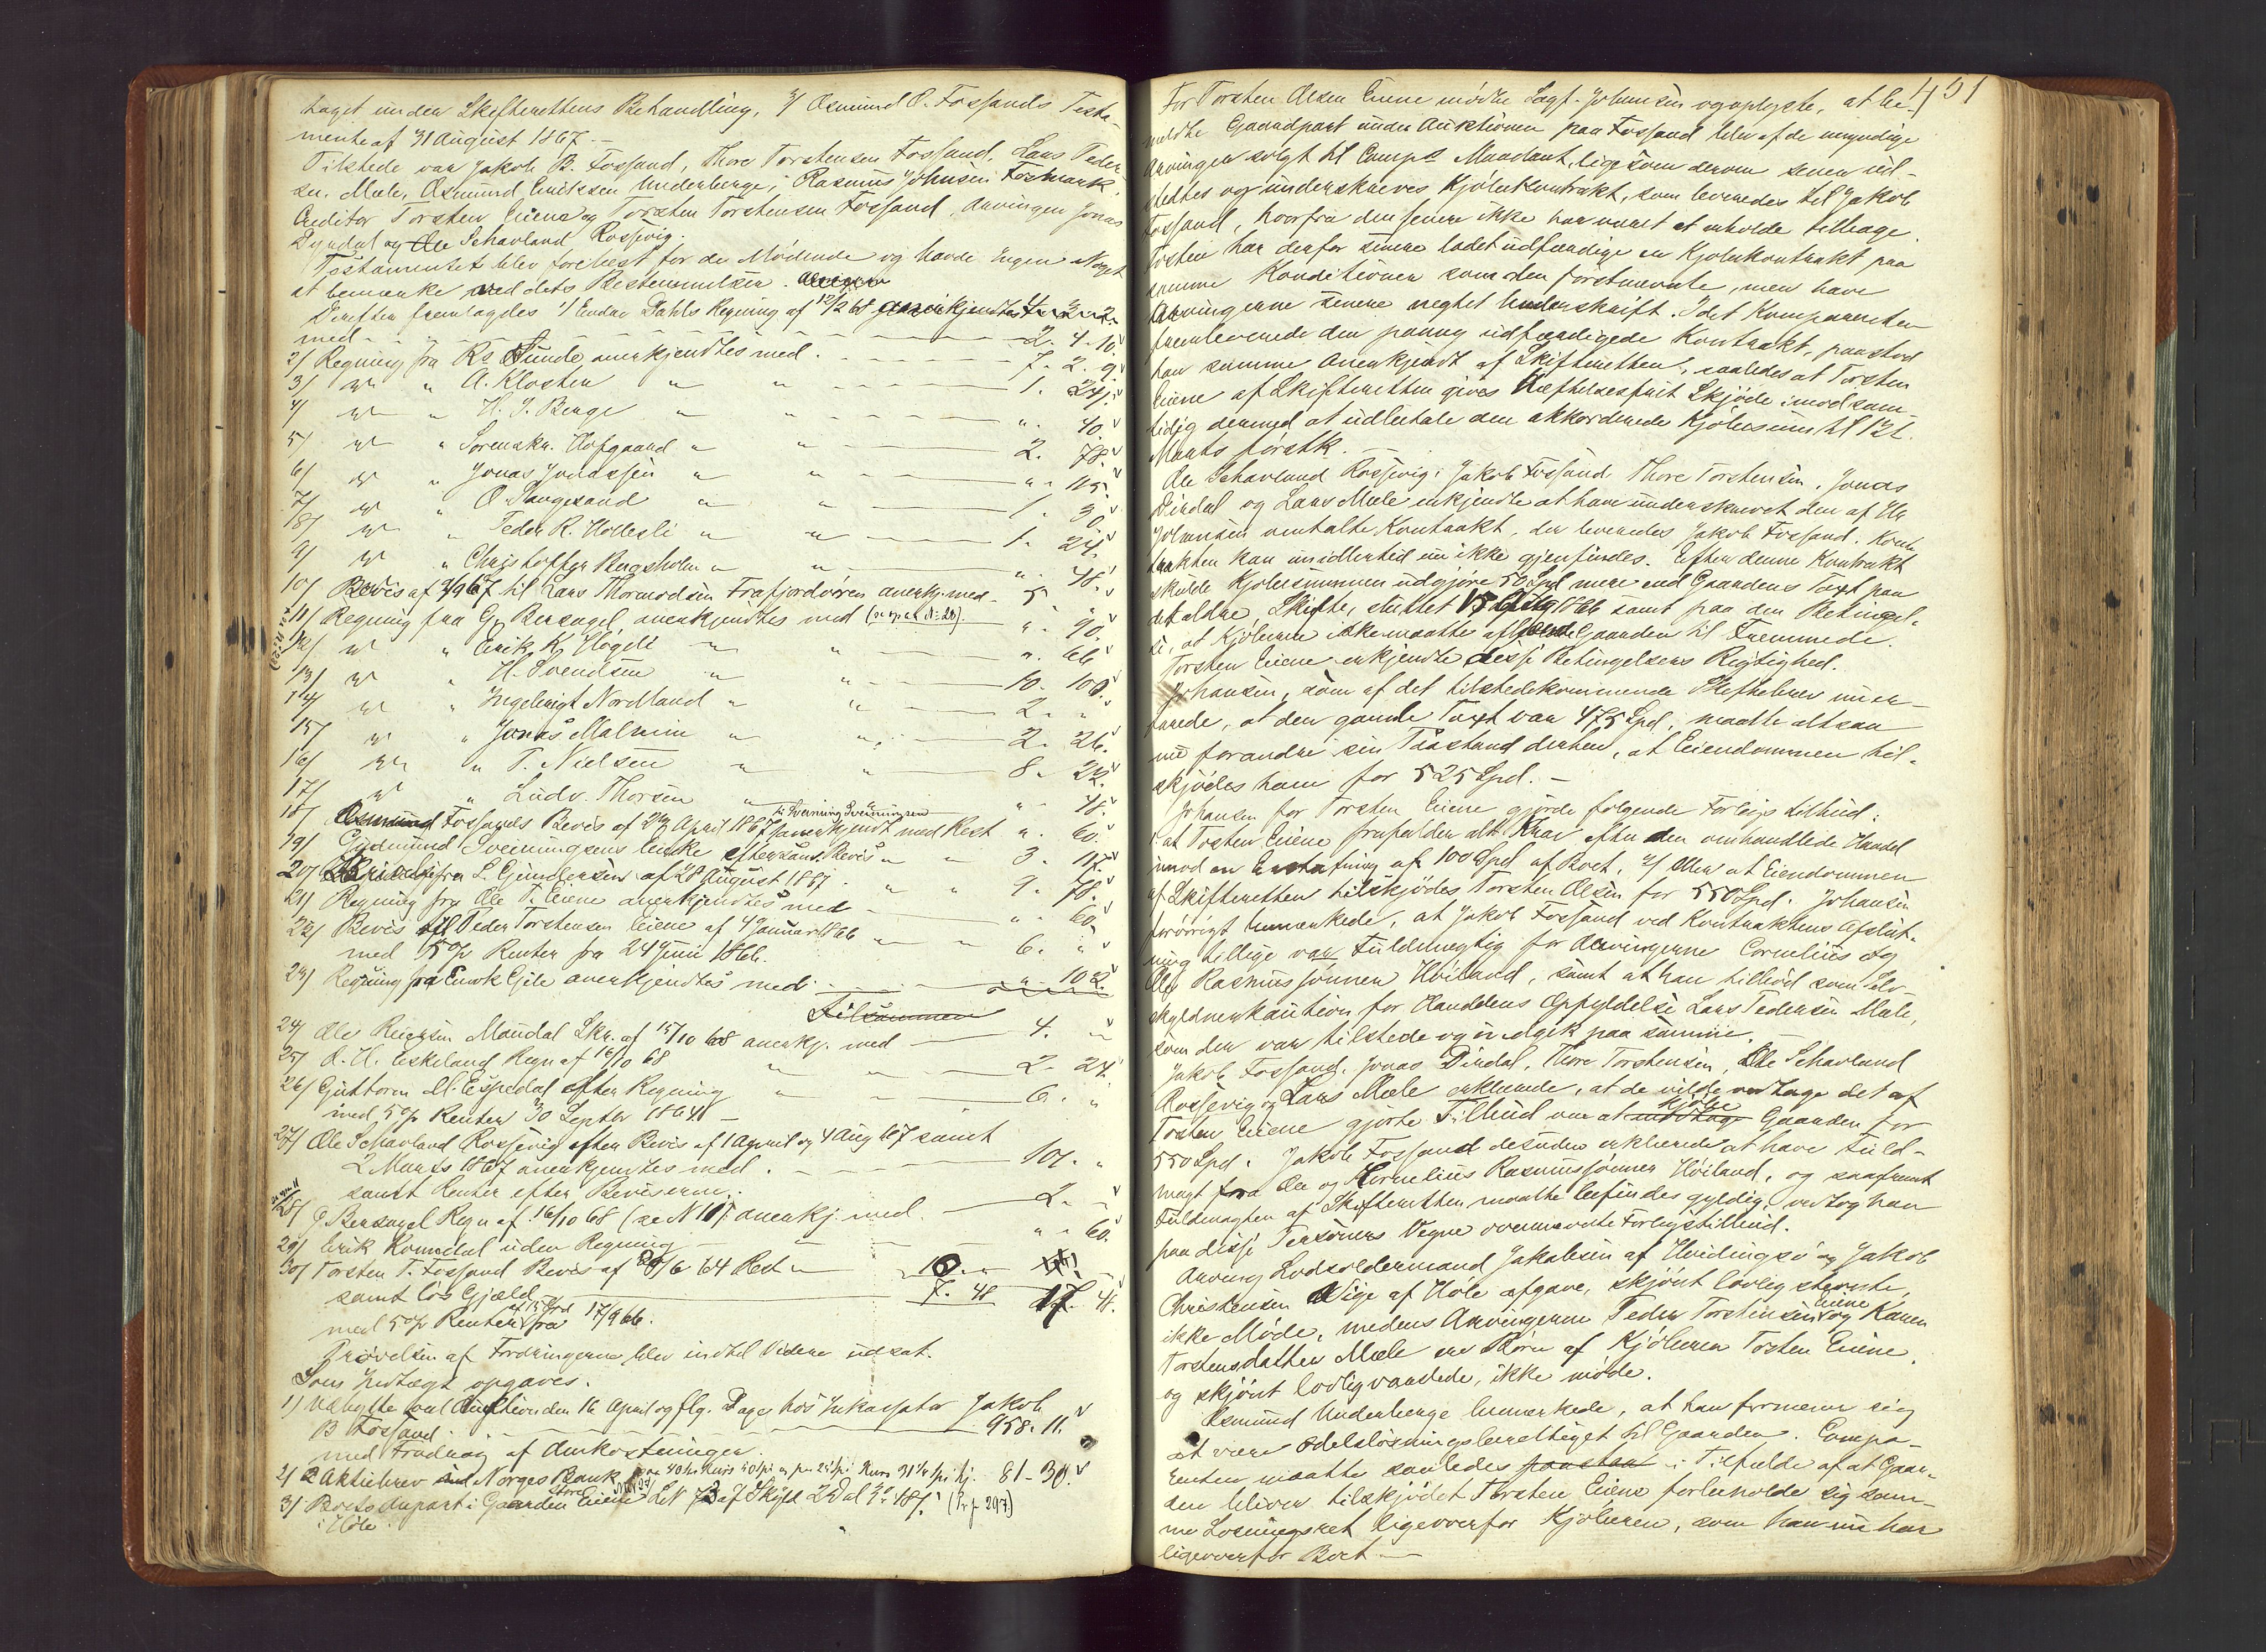 taget under Skifterettens Behandling, 3/ Osmund O. Fossands Testa-
mente af 31 August 1867. -
Tilstede var Jakob B. Fossand, Thore Torstensen Fossand, Lars Peder-
sen Mæle, Osmund Eriksen Underberge, Rasmus Johnsen Fosmark,
Creditor Torsten Eiene og Torsten Torstensen Fossand, Arvingen Jonas
Dyrdal og Ole Schavland Rossevig.
Testamentet blev forelæst for de Mødende og havde Ingen Noget
at bemærke ved dets Bestemmelser.
Derefter fremlagdes 1/ Endar Dahls Regning af 12/2 68 anerkjendtes
med - - - 2. 4. 10.
2/ Regning fra Rs Sunde anerkjendtes med . - - - 7. 2. 9
3/ " " A. Klosten " " - - - 1. 24.
4/ " " H. J. Berge " " - - - ". 40.
5/ " " Sorenskr. Hofgaard " " - - - 2. 78.
6/ " " Jonas Jonassen " " - - - " " 105.
7/ " " O Langesand " " - - - 1. 30.
8/ " " Peder R. Hollesli " " - - - 1. 24.
9/ " " Christoffer Bergsholm " " - - - ". 48.
10/ Bevis af 9/9 67 til Lars Thormodsen Frafjordøren anerkj. med - 5 "
11/ Regning fra G. Bersagel anerkjendtes med (se og at N: 28). - " . 90.
12/ " " Erik K. Høgeli " " - - - ". 66
13/ " " H. Svendsen " " - - - 10. 100.
14/ " " Ingebrigt Nordland " " - - - 2. "
15/ " " Jonas Malmin " " - - - 2. 26.
16/ " " T. Nielsen " " - - - 8. 22.
17/ " " Ludv. Thorsen " " - - - " . 48.
til Sveinung Sveinungsen
18/ Osmund Fossands Bevis af April 1867 anerkjendt med Rest ". 60.
19/ Gudmund Sveinungsens Enke efter sams. Bevis " " 3. 117.
20/ fra L. Gundersen af 28 August 1867 . " " 9. 78.
21/ Regning fra Ole T. Eiene anerkjendtes med - - " . 60.
22/ Bevis til Peder Torstensen Eiene af 4 Januar 1866 " " 6. "
med 5 o/o Renter fra 24 Juni 1866.
23/ Regning fra Enok Gjile anerkjendtes med - - - ". 102.
Tilsammen
24/ Ole Reiersen Maudal Skr. af 15/10 68 anerkj. med - 4. "
25/ A. H. Eskeland Regn af 16/10 68 " " - 2. 24.
26/ Guttorm M. Espedal efter Regning " " - 6. "
med 5 o/o Renter 30 Septbr 1864 -
27/ Ole Schavland Rossevig efter Bevis af 1 April og 4 Aug 67 samt
2 Marts 1867 anerkjendtes med . - - - 101. "
samt Renter efter Beviserne.
28/ G. Bersagel Regn af 16/10 68 (se N 11) anerkj. med - 2. "
29/ Erik Romedal uden Regning - - - " . 60.
30/ Torsten T. Fossand Bevis af 20/6 64 Rest - 10. "
samt løs Gjæld - - - 7. 48 17. 48.
af 15 Spd
med 5 o/o Renter fra 17/9 66.
Prøvelsen af Fordringerne blev indtil Videre udsat.
Som Indtægt opgaves.
1/ Udbytte ved Auktion den 16 April og flg. Dage hos Inkassator Jakob
B Fossand . - - - 958. 11.
med Fradrag af Omkostninger.
2/ 2 Aktiebrev i Norges Bank 81 - 30.
3/ Boets Anpart i Gaarden Store Eiene LN 73 af Skyld 2 Dal 3 o 18 s. (Prf 297)
i Høle.
451
For Torsten Olsen Eiene mødte Sagf. Johansen og oplyste, at be-
meldte Gaardpart under Auktionen paa Fossand blev af de myndige
Arvinger solgt til Comp.s Mandant, ligesom derom senere ud-
stedtes og underskreves Kjøbekontrakt, som leveredes til Jakob
Fossand, hvorfra den senere ikke har været at erholde tilbage.
Torsten har derfor senere ladet udfærdige en Kjøbekontrakt paa
samme Konditioner som den førstnævnte, men have
Arvingerne senere negtet Underskrift. Idet Komparenten
fremleverede den paany udfærdigede Kontrakt, paastod
han samme anerkjendt af Skifteretten, saaledes at Torsten
Eiene af Skifteretten gives Hæftelsesfrit Skjøde imod sam-
tidig dermed at udbetale den akkorderede Kjøbesum til 1ste
Marts førstk. -
Ole Schavland Rossevig, Jakob Fossand, Thore Torstensen, Jonas
Dirdal og Lars Mæle erkjendte at have underskrevet den af Hr
Johansen omtalte Kontrakt, der leveredes Jakob Fossand. Kon-
trakten kan imidlertid nu ikke gjenfindes. Efter denne Kontrakt
skulde Kjøbesummen udgjøre 50 Spd mere end Gaardens Taxt paa
det ældre Skifte, sluttet 1866 samt paa den Betingel-
se, at Kjøberen ikke maatte afhænde Gaarden til Fremmede.
Torsten Eiene erkjendte disse Betingelsers Rigtighed.
Johansen, som af det tilstedekommende Skiftebrev nu er-
farede, at den gamle Taxt var 475 Spd, maatte altsaa
nu forandre sin Paastand derhen, at Eiendommen til-
skjødes ham for 525 Spd. -
Johansen for Torsten Eiene gjorde følgende Forligstilbud:
1/ at Torsten Eiene frafalder alt Krav efter den omhandlede Handel
imod en Erstatning af 100 Spd af Boet, 2/ eller at Eiendommen
af Skifteretten tilskjødes Torsten Olsen for 550 Spd. Johansen
forøvrigt bemærkede, at Jakob Fossand ved Kontraktens Afslut-
ning tillige var Fuldmægtig for Arvingerne Cornelius og
Ole Rasmussønner Høiland, samt at han tilbød som Selv-
skyldnerkaution for Handelens Opfyldelse Lars Pedersen Mæle,
som der var tilstede og indgik paa samme. -
Jakob Fossand, Jonas Dirdal, Thore Torstensen, Ole Schavland
Rossevig og Lars Mæle erklærede, at de vilde vedtage det af
Torsten Eiene gjorte Tilbud om at kjøbe Gaarden for
550 Spd. Jakob Fossand desuden erklærede at have Fuld-
magt fra Ole og Kornelius Rasmussønner Høiland, og saafremt
Fuldmagten af Skifteretten maatte befindes gyldig, vedtog han
paa disse Personers Vegne ovennævnte Forligstilbud.
Arving Lodsoldermand Jakobsen af Hvidingsø og Jakob
Christensen Vige af Høle afgave, skjønt lovlig stevnte,
ikke Møde, medens Arvingerne Peder Torstensen Eiene og Karen
Torstensdatter Mæle ere Børn af Kjøberen Torsten Eiene,
og skjønt lovlig varslede, ikke møde.
Osmund Underberge bemærkede, at han formener sig
at være odelsløsningsberettiget til Gaarden. Compa-
renten maatte saaledes paastaa i Tilfælde af at Gaar-
den bliver tilskjødet Torsten Eiene forbeholde sig sam-
me Løsningsret ligeoverfor Kjøberen, som han nu har
ligeoverfor Boet -